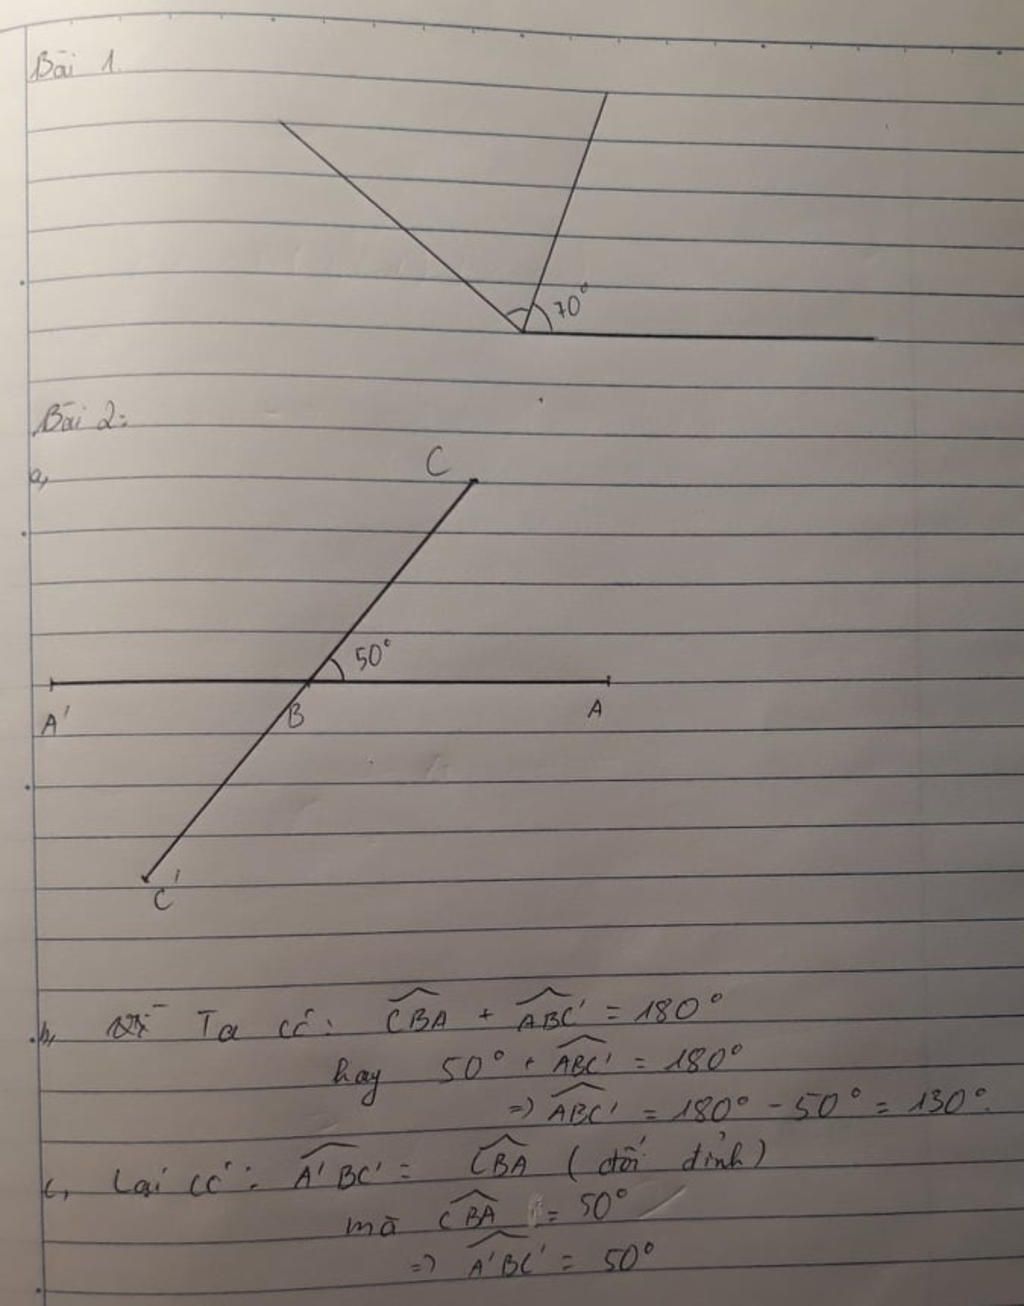 Bài 1.
70°
Bài 2:
a,
C
50°
A' B A
C'
b, Ta có: CBA + ABC' = 180°
hay 50° + ABC' = 180°
=> ABC' = 180° - 50° = 130°.
c, Lại có: A'BC' = CBA (đối đỉnh)
mà CBA = 50°
=> A'BC' = 50°